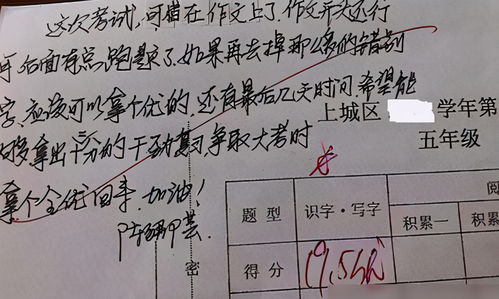 这次考试,可惜在作文上了,作文开头还行
可后面有点跑题了,如果再去掉那么多的错别
字,应该可以拿个优的,还有最后几天时间希望能
够拿出十分的干劲复习争取大考时
拿个全优回来,加油!
上城区 学年第
五年级
题 型 识字·写字 阅
积累一 积累
得 分 19.5
密